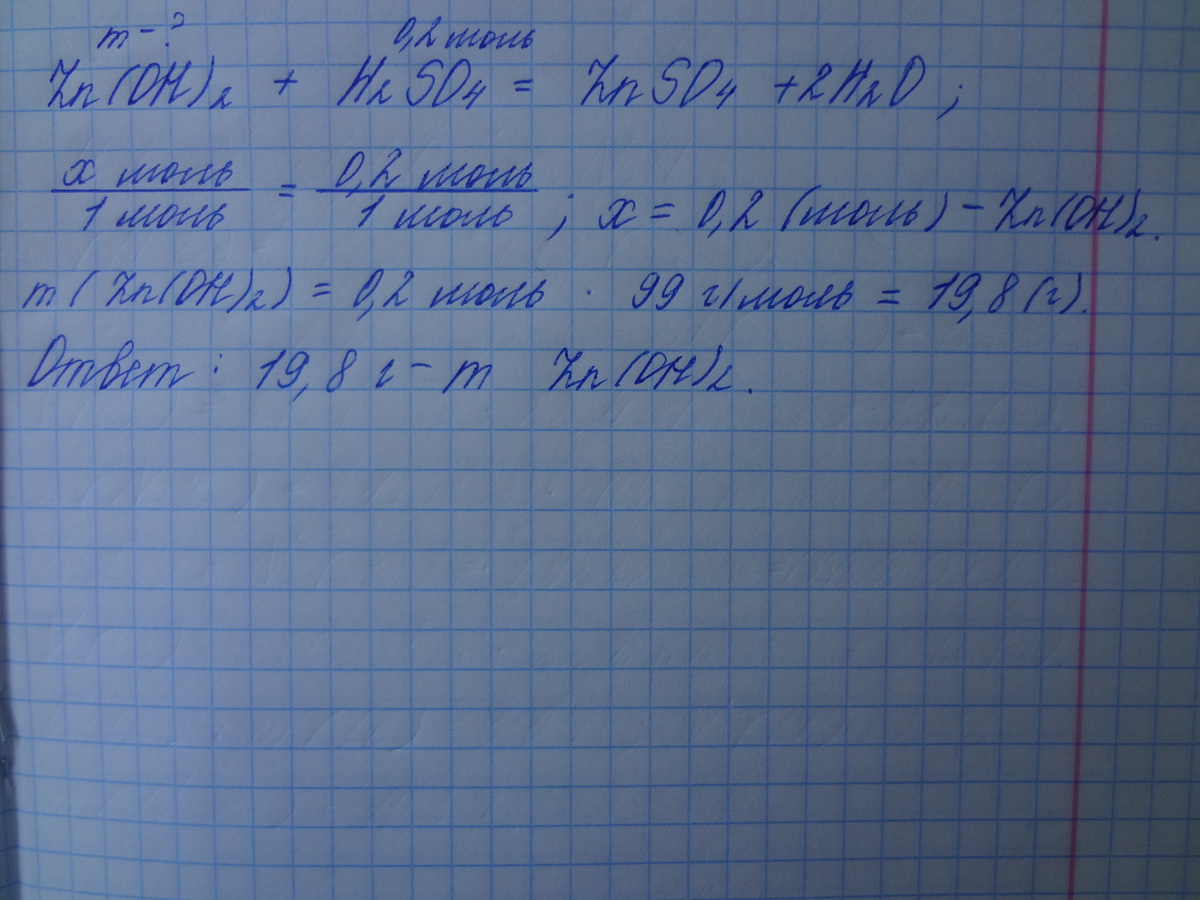 m - ? 0,2 моль
Zn(OH)₂ + H₂SO₄ = ZnSO₄ + 2H₂O ;
x моль / 1 моль = 0,2 моль / 1 моль ; x = 0,2 (моль) - Zn(OH)₂.
m ( Zn(OH)₂ ) = 0,2 моль · 99 г/моль = 19,8 (г).
Ответ : 19,8 г - m Zn(OH)₂.